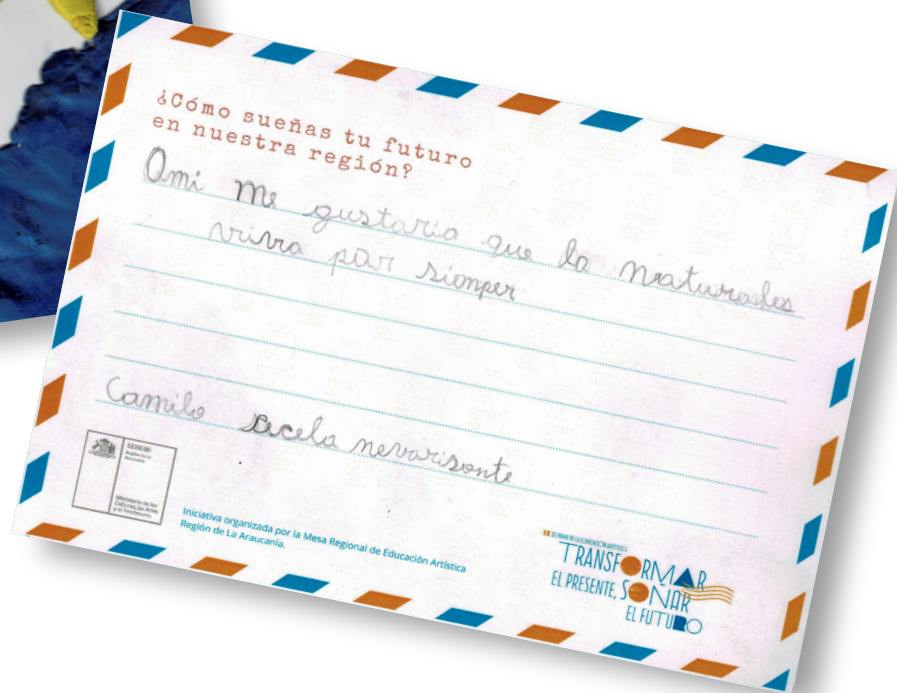 ¿Cómo sueñas tu futuro
en nuestra región?
Ami me gustaria que la naturales
vivra par siemper
Camilo
SEREMI
Región de La
Araucanía
Ministerio de las
Culturas, las Artes
y el Patrimonio
Iniciativa organizada por la Mesa Regional de Educación Artística
Región de La Araucanía.
TRANSFORMAR
EL PRESENTE, SOÑAR
EL FUTURO